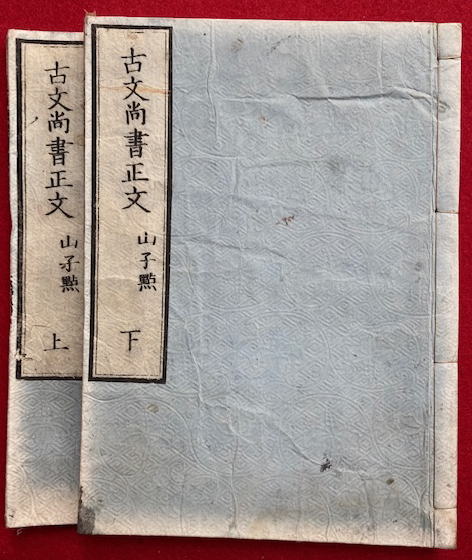 古文尚書正文
山子點
下
古文尚書正文
山子點
上